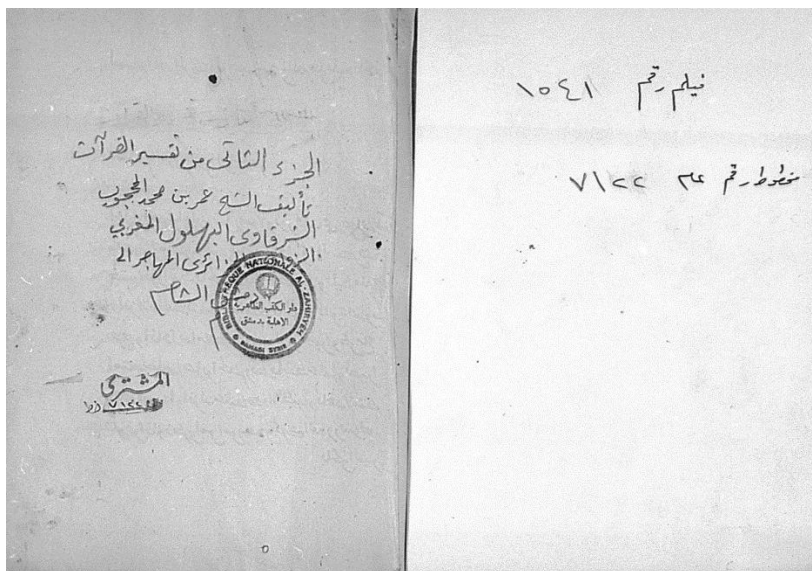 فيلم رقم ١٥٤١
مخطوط رقم عام ٧١٢٢
الجزء الثاني من تفسير القرآن
تأليف الشيخ عمر بن محمد المحجوب
الشرقاوي البهلول المغربي
الجزائري المهاجر الى
دمشق الشام
BIBLIOTHEQUE NATIONALE AL-ZAHIRYEH
دار الكتب الظاهرية
الاهلية بدمشق
DAMAS SYRIE
المشترى
٧١٢٢